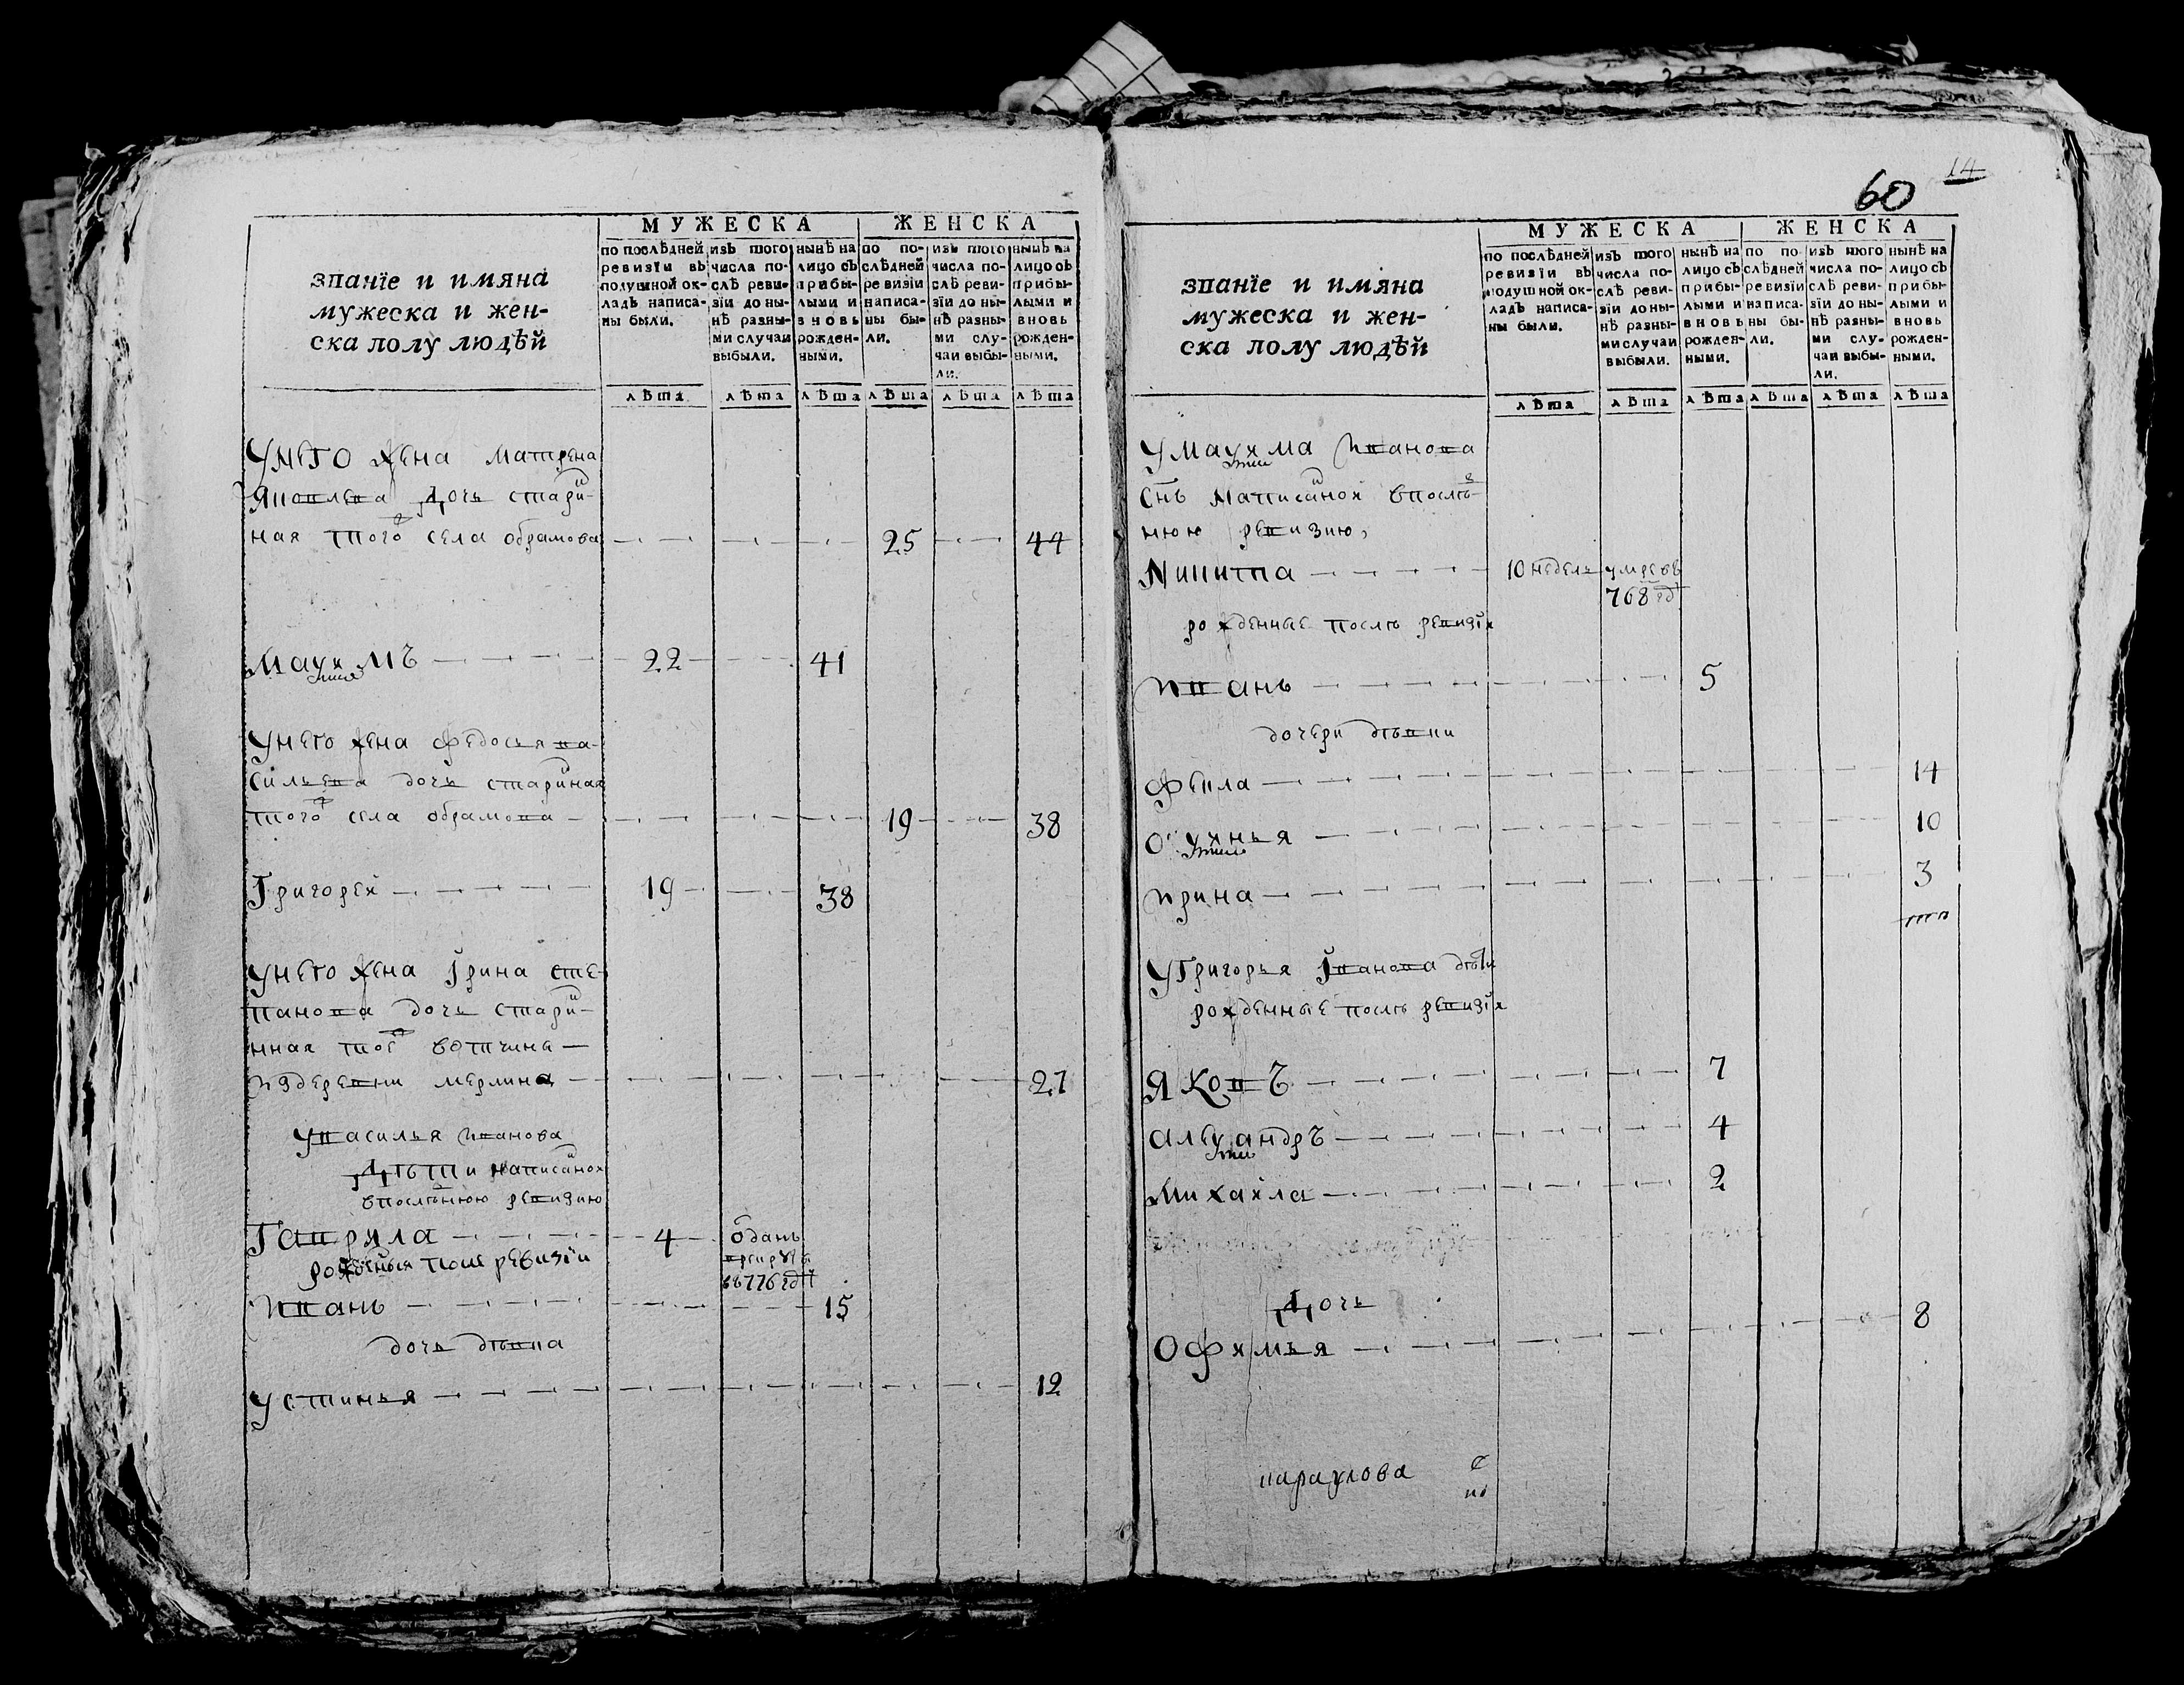 званїе и имяна
мужеска и жен-
ска полу людѣй
МУЖЕСКА
ЖЕНСКА
по послѣдней ревизїи въ подушной ок-ладъ написа-ны были.
изъ того числа по-слѣ реви-зїи до ны-нѣ разны-ми случаи выбыли.
нынѣ на лицо съ прибы-лыми и вновь рожден-ными.
по по-слѣдней ревизїи написа-ны бы-ли.
изъ того числа по-слѣ реви-зїи до ны-нѣ разны-ми слу-чаи выбы-ли.
нынѣ на лицо съ прибы-лыми и вновь рожден-ными.
лѣта лѣта лѣта лѣта лѣта лѣта
У него жена Матрена
Яковлева дочь стари-
ная того села обрамова 25 44
Маѯимъ 22 41
У него жена Федосья ва-
сильева дочь стариная
того села обрамова 19 38
Григорей 19 38
У него жена Iрина сте-
панова дочь стари-
нная той вотчины
из деревни мерлина 27
У василья иванова
дѣти написаной
в послѣнюю ревизию
Гаврила 4 одань
в рекруты
въ 776 году
рожденыя после ревизїи
иванъ 15
дочь дѣвка
устинья 12
14
60
званїе и имяна
мужеска и жен-
ска полу людѣй
МУЖЕСКА
ЖЕНСКА
по послѣдней ревизїи въ подушной ок-ладъ написа-ны были.
изъ того числа по-слѣ реви-зїи до ны-нѣ разны-ми случаи выбыли.
нынѣ на лицо съ прибы-лыми и вновь рожден-ными.
по по-слѣдней ревизїи написа-ны бы-ли.
изъ того числа по-слѣ реви-зїи до ны-нѣ разны-ми слу-чаи выбы-ли.
нынѣ на лицо съ прибы-лыми и вновь рожден-ными.
лѣта лѣта лѣта лѣта лѣта лѣта
У маѯима иванова
снъ написаной в послѣ-
нюю ревизию,
Никита 10 недель умре въ
768 гд
рожденные послѣ ревизїи
иванъ 5
дочери дѣвки
Фекла 14
Оѯинья 10
ирина 3
У Григорья Iванова дѣти
рожденные послѣ ревизїи
Яковъ 7
алеѯандръ 4
михайла 2
дочь
Офимья 8
караулова